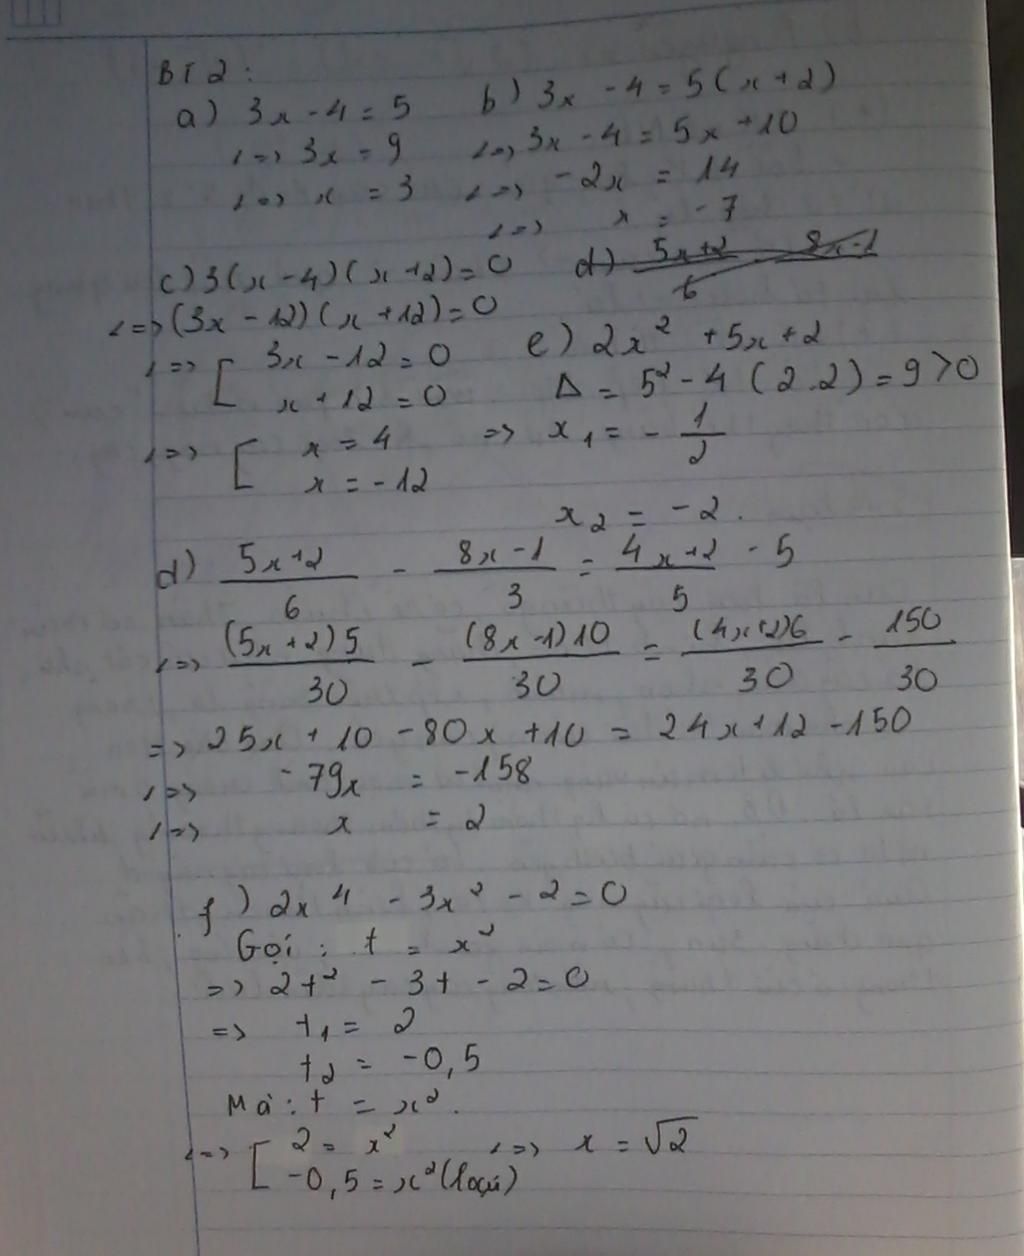 BT2:
a) 3x - 4 = 5
<=> 3x = 9
<=> x = 3
b) 3x - 4 = 5(x+2)
<=> 3x - 4 = 5x + 10
<=> -2x = 14
<=> x = -7
c) 3(x-4)(x+2) = 0
<=> (3x - 12)(x+12) = 0
<=> [ 3x - 12 = 0
x + 12 = 0
<=> [ x = 4
x = -12
d) 5x+2 / 6 8x-1
e) 2x² + 5x + 2
Δ = 5² - 4(2.2) = 9 > 0
=> x₁ = - 1/2
x₂ = -2.
d) (5x+2)/6 - (8x-1)/3 = (4x+2)/5 - 5
<=> (5x+2)5/30 - (8x-1)10/30 = (4x+2)6/30 - 150/30
=> 25x + 10 - 80x + 10 = 24x + 12 - 150
<=> -79x = -158
<=> x = 2
f) 2x⁴ - 3x² - 2 = 0
Gọi: t = x²
=> 2t² - 3t - 2 = 0
=> t₁ = 2
t₂ = -0,5
Mà: t = x².
<=> [ 2 = x² <=> x = √2
-0,5 = x² (loại)